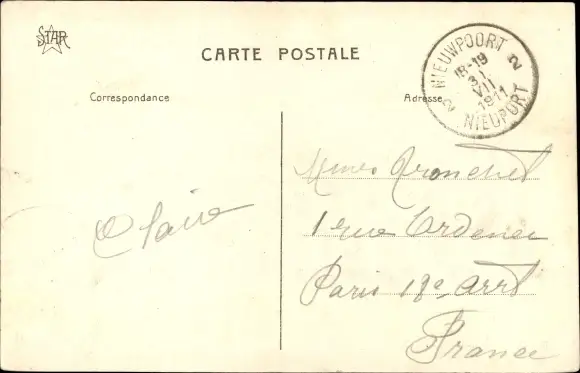 STAR
CARTE POSTALE
Correspondance
Adresse
NIEUWPOORT 2
18-19
31
VII
1911
2 NIEUPORT
Claire
Mmes Tronchet
1 rue Ordener
Paris 18e Arrt
France